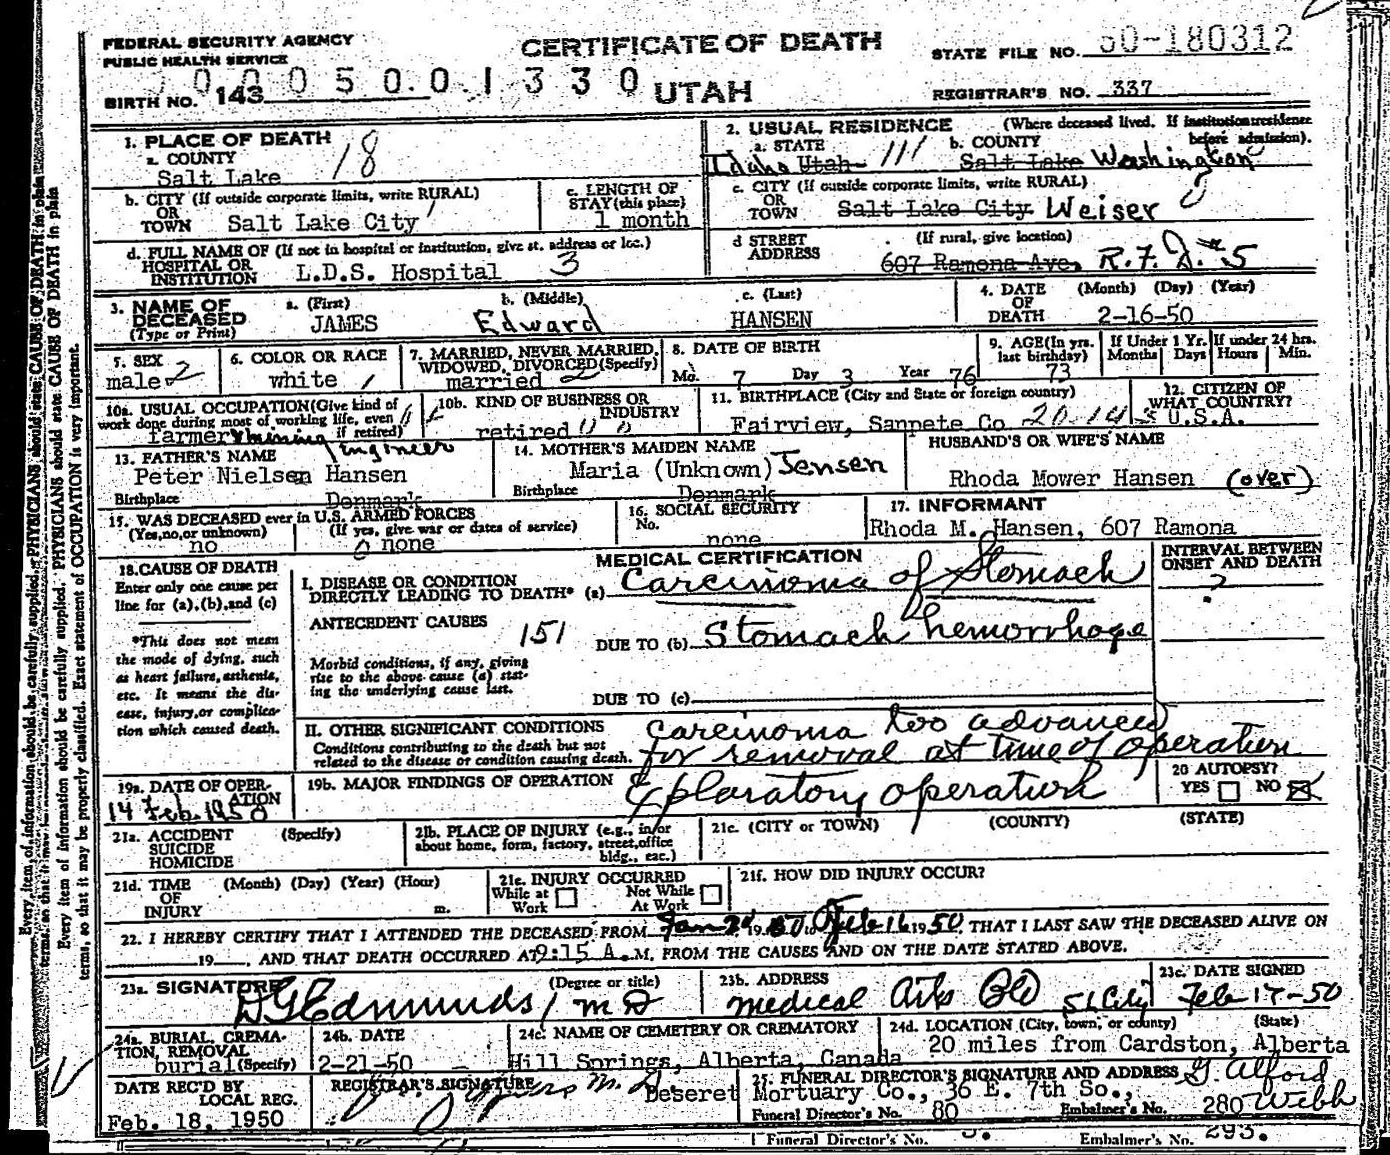 FEDERAL SECURITY AGENCY
PUBLIC HEALTH SERVICE
CERTIFICATE OF DEATH
STATE FILE NO. 50-180312
0005001330
BIRTH NO. 143
UTAH
REGISTRAR'S NO. 337
1. PLACE OF DEATH
a. COUNTY
Salt Lake
18
2. USUAL RESIDENCE (Where deceased lived. If institution: residence before admission).
a. STATE
b. COUNTY
Idaho Utah 111 Salt Lake Washington
b. CITY (If outside corporate limits, write RURAL)
OR
TOWN Salt Lake City
c. LENGTH OF
STAY (this place)
1 month
c. CITY (If outside corporate limits, write RURAL)
OR
TOWN Salt Lake City Weiser
d. FULL NAME OF (If not in hospital or institution, give st. address or loc.)
HOSPITAL OR
INSTITUTION L.D.S. Hospital 3
d STREET (If rural, give location)
ADDRESS 607 Ramona Ave. R.F.D. #5
3. NAME OF
DECEASED
(Type or Print)
a. (First) b. (Middle) c. (Last)
JAMES Edward HANSEN
4. DATE (Month) (Day) (Year)
OF
DEATH 2-16-50
5. SEX
male 2
6. COLOR OR RACE
white 1
7. MARRIED, NEVER MARRIED,
WIDOWED, DIVORCED (Specify)
married 2
8. DATE OF BIRTH
Mo. 7 Day 3 Year 76
9. AGE (In yrs.
last birthday)
73
If Under 1 Yr.
Months Days
If under 24 hrs.
Hours Min.
10a. USUAL OCCUPATION (Give kind of
work done during most of working life, even
if retired)
farmer & mining Engineer
10b. KIND OF BUSINESS OR
INDUSTRY
retired
11. BIRTHPLACE (City and State or foreign country)
Fairview, Sanpete Co 20-14
12. CITIZEN OF
WHAT COUNTRY?
U.S.A.
13. FATHER'S NAME
Peter Nielsen Hansen
Birthplace Denmark
14. MOTHER'S MAIDEN NAME
Maria (Unknown) Jensen
Birthplace Denmark
HUSBAND'S OR WIFE'S NAME
Rhoda Mower Hansen (over)
15. WAS DECEASED ever in U.S. ARMED FORCES
(Yes, no, or unknown) (If yes, give war or dates of service)
no 0 none
16. SOCIAL SECURITY
No. none
17. INFORMANT
Rhoda M. Hansen, 607 Ramona
18. CAUSE OF DEATH
Enter only one cause per
line for (a), (b), and (c)
*This does not mean
the mode of dying, such
as heart failure, asthenia,
etc. It means the dis-
ease, injury, or complica-
tion which caused death.
MEDICAL CERTIFICATION
I. DISEASE OR CONDITION
DIRECTLY LEADING TO DEATH* (a) Carcinoma of Stomach
INTERVAL BETWEEN
ONSET AND DEATH
?
ANTECEDENT CAUSES 151
DUE TO (b) Stomach hemorrhage
Morbid conditions, if any, giving
rise to the above cause (a) stat-
ing the underlying cause last.
DUE TO (c)
II. OTHER SIGNIFICANT CONDITIONS
Conditions contributing to the death but not
related to the disease or condition causing death.
Carcinoma too advanced
for removal at time of operation
19a. DATE OF OPER-
ATION
14 Feb. 1950
19b. MAJOR FINDINGS OF OPERATION
Exploratory operation
20 AUTOPSY?
YES NO
21a. ACCIDENT (Specify)
SUICIDE
HOMICIDE
21b. PLACE OF INJURY (e.g., in or
about home, form, factory, street, office
bldg., eac.)
21c. (CITY or TOWN) (COUNTY) (STATE)
21d. TIME (Month) (Day) (Year) (Hour)
OF
INJURY m.
21e. INJURY OCCURRED
While at Work Not While At Work
21f. HOW DID INJURY OCCUR?
22. I HEREBY CERTIFY THAT I ATTENDED THE DECEASED FROM Jan 1950 to Feb 16 1950, THAT I LAST SAW THE DECEASED ALIVE ON
19 , AND THAT DEATH OCCURRED AT 9:15 A. M, FROM THE CAUSES AND ON THE DATE STATED ABOVE.
23a. SIGNATURE (Degree or title)
D G Edmunds, MD
23b. ADDRESS
Medical Arts Bld SL City
23c. DATE SIGNED
Feb-17-50
24a. BURIAL, CREMA-
TION, REMOVAL
burial (Specify)
24b. DATE
2-21-50
24c. NAME OF CEMETERY OR CREMATORY
Hill Springs, Alberta, Canada
24d. LOCATION (City, town, or county) (State)
20 miles from Cardston, Alberta
DATE REC'D BY
LOCAL REG.
Feb. 18, 1950
REGISTRAR'S SIGNATURE
M. D.
25. FUNERAL DIRECTOR'S SIGNATURE AND ADDRESS G. Alford Webb
Deseret Mortuary Co., 36 E. 7th So.,
Funeral Director's No. 80 Embalmer's No. 280
Funeral Director's No. Embalmer's No. 293.
Every item of information should be carefully supplied. PHYSICIANS should state CAUSE OF DEATH in plain
terms, so that it may be properly classified. Exact statement of OCCUPATION is very important.